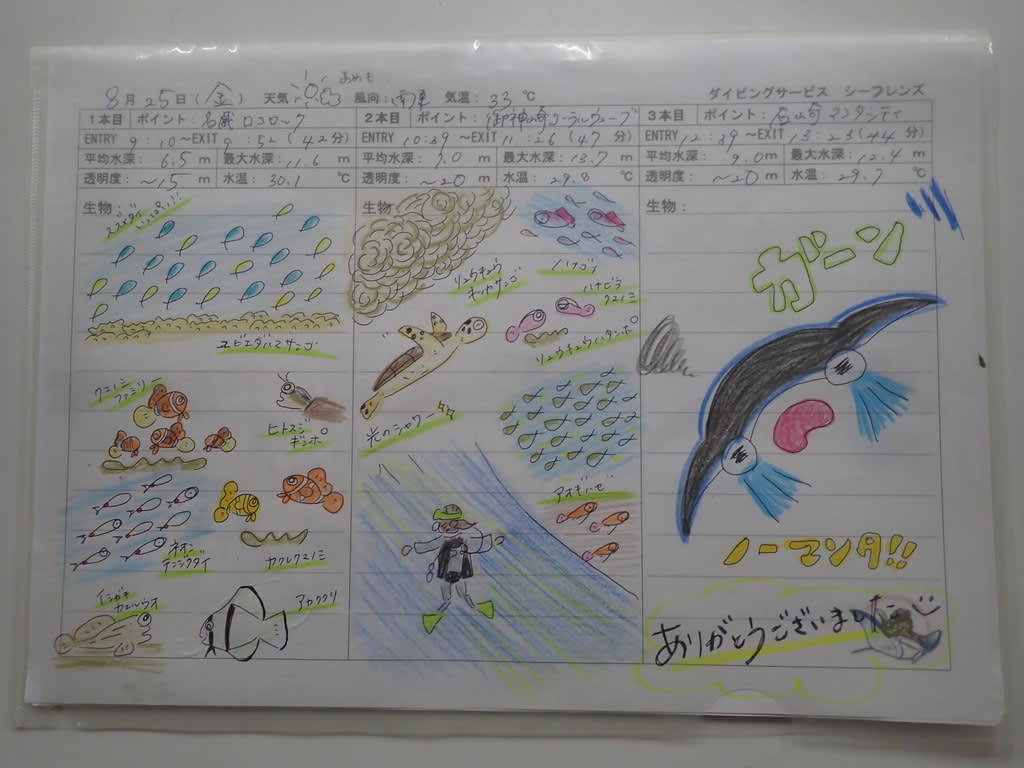 8月25日(金) 天気: 風向:南東 気温: 33℃
あめも
ダイビングサービス シーフレンズ
1本目 ポイント: 名蔵ロコロック
ENTRY 9:10〜EXIT 9:52(42分)
平均水深: 6.5m 最大水深: 11.6m
透明度: 〜15m 水温: 30.1℃
生物:
ユビエダハマサンゴ
クマノミ
ファミリー
ヒトスジ
ギンポ
ネオン
テンジクダイ
カクレクマノミ
イシガキ
カエルウオ
アカククリ
2本目 ポイント: 御神崎コーラルウェーブ
ENTRY 10:39〜EXIT 11:26(47分)
平均水深: 7.0m 最大水深: 13.7m
透明度: 〜20m 水温: 29.8℃
生物:
リュウキュウ
キッカサンゴ
ハナゴイ
ハナビラ
クマノミ
光のシャワー
3本目 ポイント:
ENTRY 12:39〜EXIT 13:23(44分)
平均水深: 9.0m 最大水深: 12.4m
透明度: 〜20m 水温: 29.7℃
生物:
ガーン
ノーマンタ!!
ありがとうございました